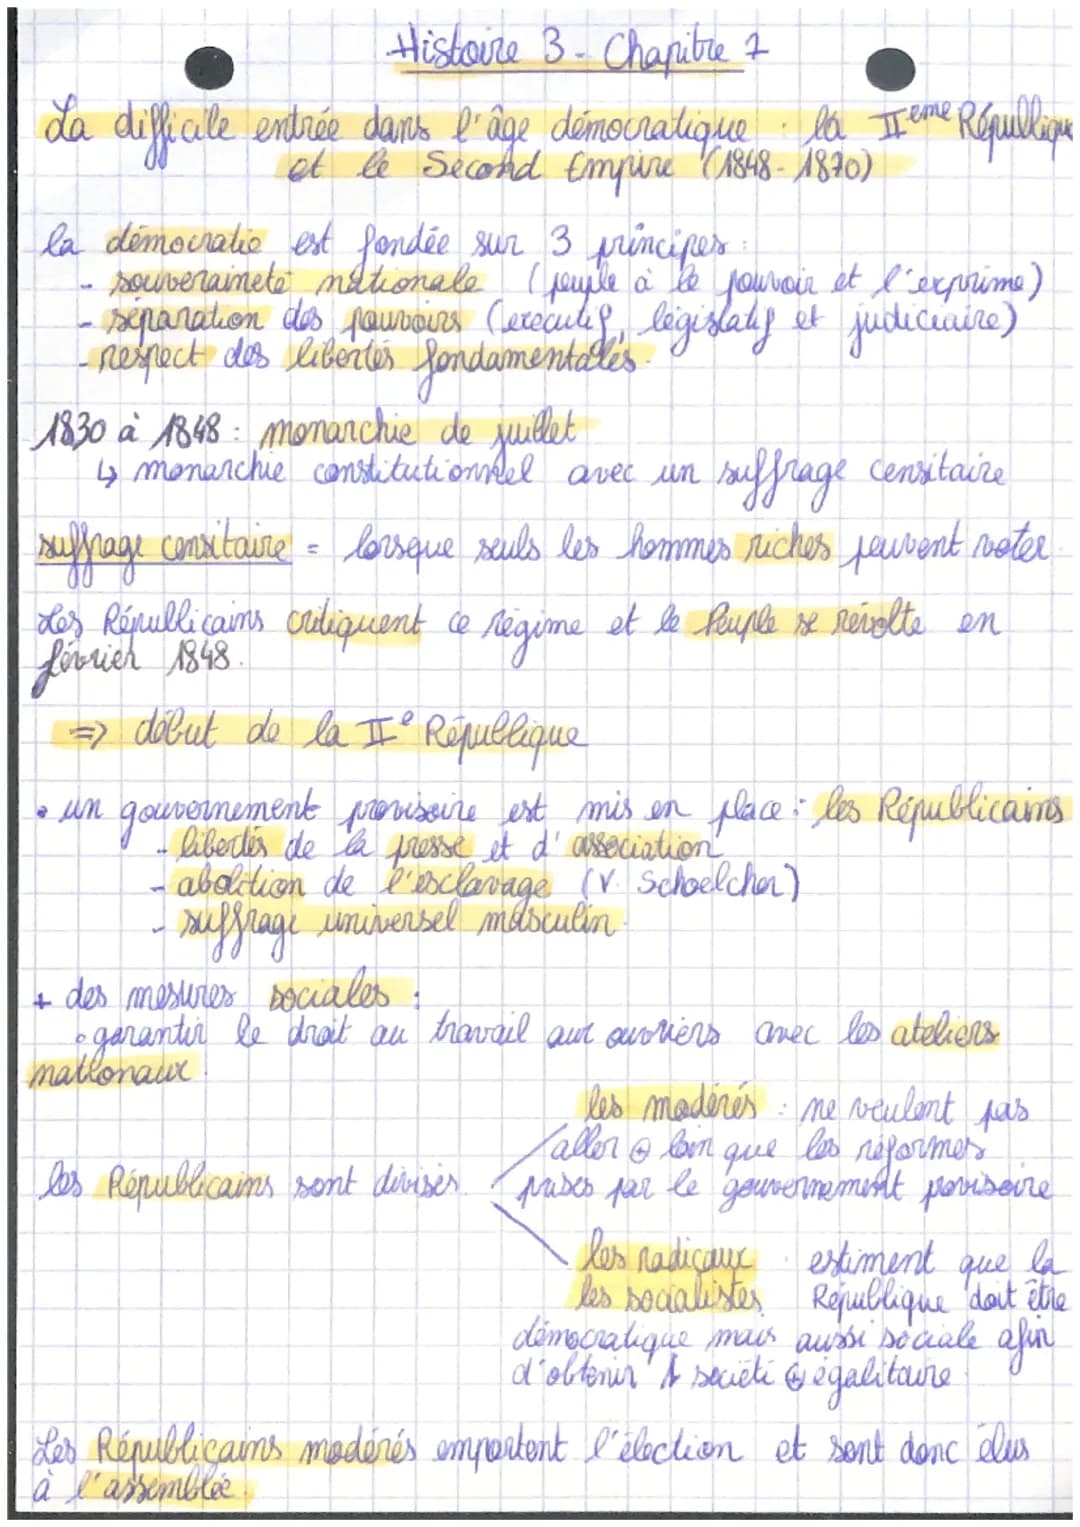 Histoire 3 - Chapitre 1
La difficile entrée dans l'âge démocratique : la IIème République
et le Second Empire (1848-1870)
la démocratie est fondée sur 3 principes :
- souveraineté nationale (peuple à le pouvoir et l'exprime)
- séparation des pouvoirs (executif, législatif et judiciaire)
- respect des libertés fondamentales.
1830 à 1848 : monarchie de juillet
↳ monarchie constitutionnel avec un suffrage censitaire
suffrage censitaire = lorsque seuls les hommes riches peuvent voter.
Les Républicains critiquent ce régime et le Peuple se révolte en
février 1848.
=> début de la IIe République
• un gouvernement provisoire est mis en place : les Républicains
- libertés de la presse et d'association
- abolition de l'esclavage (V. Schoelcher)
- suffrage universel masculin.
+ des mesures sociales :
• garantir le droit au travail aux ouvriers avec les ateliers
nationaux.
les modérés : ne veulent pas
aller ⊕ loin que les réformes
les Républicains sont divisés. prises par le gouvernement provisoire
les radicaux : estiment que la
les socialistes République doit être
démocratique mais aussi sociale afin
d'obtenir 1 société ⊕ égalitaire.
Les Républicains modérés emportent l'élection et sont donc élus
à l'assemblée.